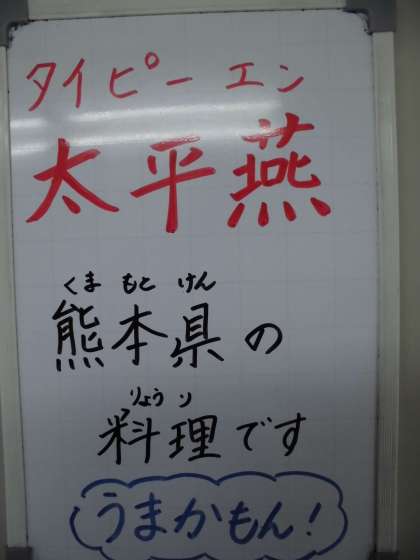 タイピーエン
太平燕
くまもとけん
熊本県の
りょうり
料理です
うまかもん!